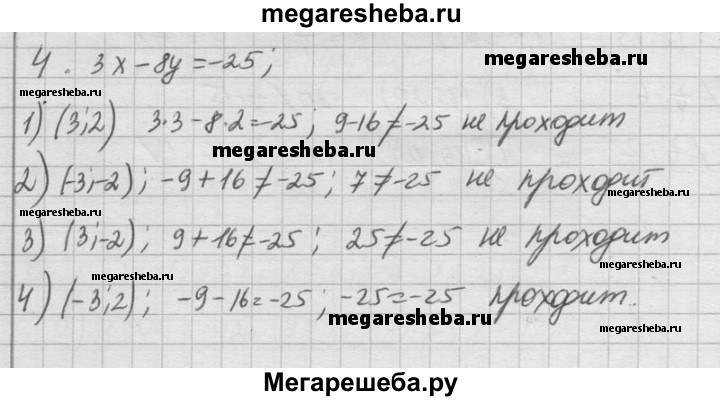 megaresheba.ru
4. 3x-8y=-25;
megaresheba.ru
megaresheba.ru
1) (3;2) 3·3-8·2=-25; 9-16≠-25 не проходит
megaresheba.ru
2) (-3;-2); -9+16≠-25; 7≠-25 не проходит
megaresheba.ru
3) (3;-2); 9+16≠-25; 25≠-25 не проходит
megaresheba.ru
megaresheba.ru
4) (-3;2); -9-16=-25; -25=-25 проходит.
megaresheba.ru
megaresheba.ru
Мегарешеба.ру